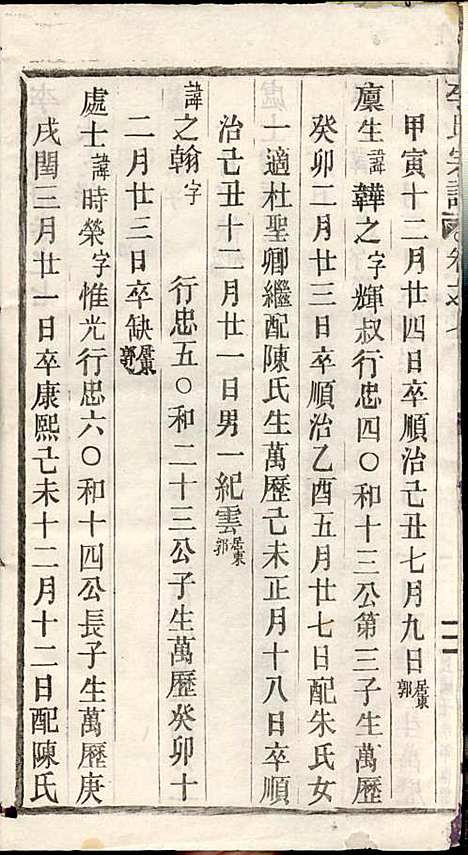 甲寅十二月廿四日卒順治己丑七月九日居東郭
廩生諱韡之字輝叔行忠四〇和十三公第三子生萬歷
癸卯二月廿三日卒順治乙酉五月廿七日配朱氏女
一適杜聖卿繼配陳氏生萬歷己未正月十八日卒順
治己丑十二月廿一日男一紀雲居東郭
諱之翰字 行忠五〇和二十三公子生萬歷癸卯十
二月廿三日卒缺居東郭
處士諱時榮字惟光行忠六〇和十四公長子生萬歷庚
戌閏三月廿一日卒康熙己未十二月十二日配陳氏